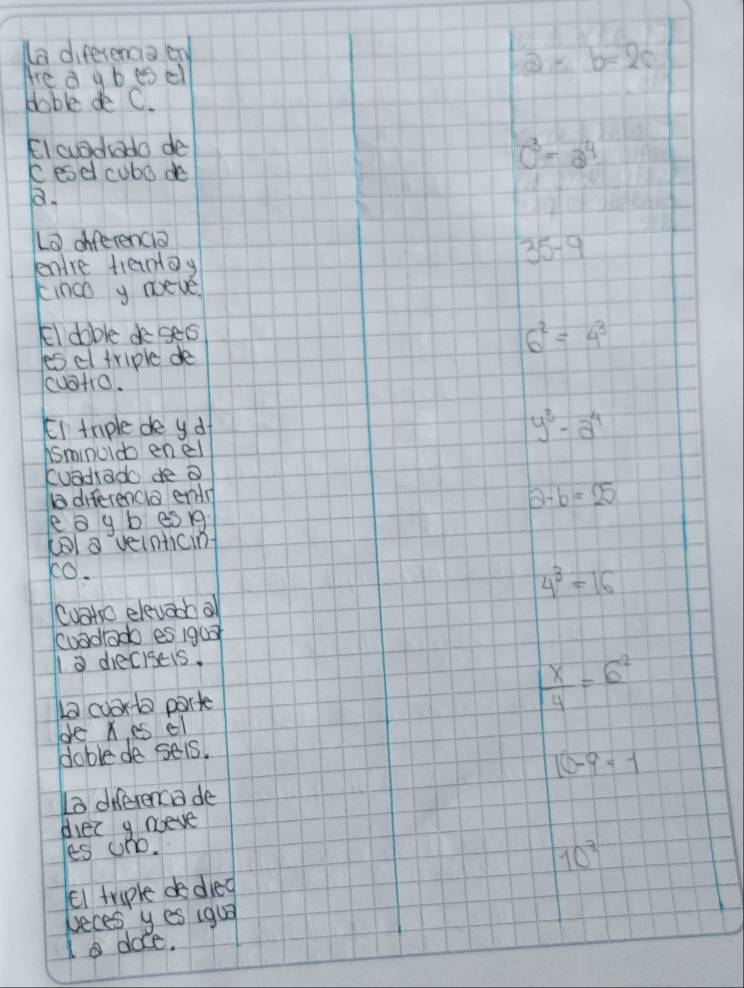 La diferencia en
tre a y b es el
doble de C.
a - b = 2c
El cuadrado de
C es el cubo de
a.
c³ = a⁴
La diferencia
entre treinta y
cinco y nueve.
35-9
El doble de seis
es el triple de
cuatro.
6² = 4³
El triple de y d
isminuido en el
cuadrado de a
y³ - a⁴
la diferencia entr
e a y b es ig
ual a veinticin
co.
a-b = 25
Cuatro elevado al
cuadrado es igua
l a dieciseis.
4³ = 16
La cuarta parte
de X, es el
doble de seis.
x/4 = 6²
La diferencia de
diez y nueve
es uno.
10-9 = 1
El triple de diez
veces y es igua
l a doce.
10³